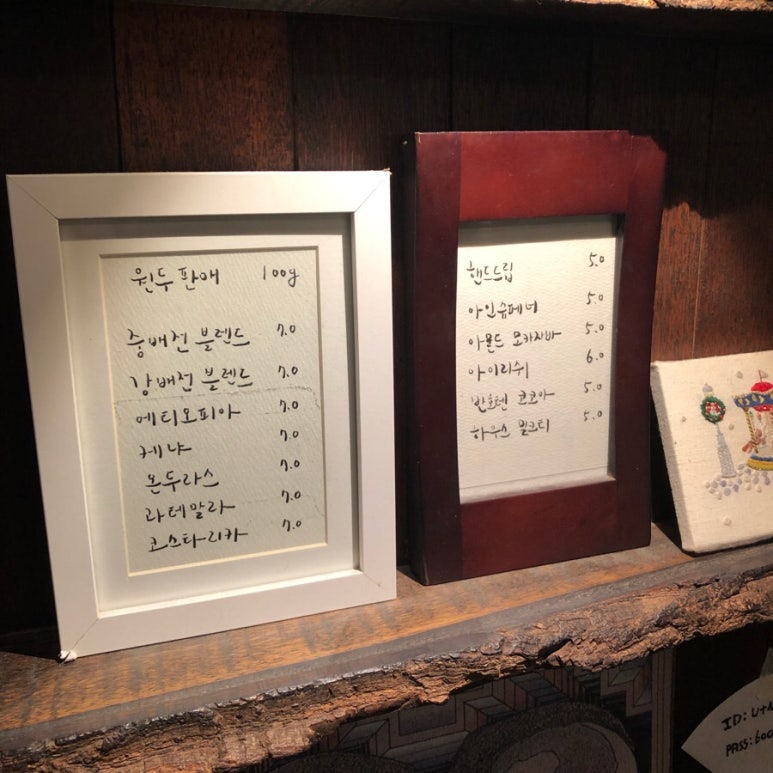 원두판매 100g
중배전 블렌드 7.0
강배전 블렌드 7.0
에티오피아 7.0
케냐 7.0
온두라스 7.0
과테말라 7.0
코스타리카 7.0
핸드드립 5.0
아인슈페너 5.0
아몬드 모카자바 5.0
아이리쉬 6.0
반호텐 코코아 5.0
하우스 밀크티 5.0
ID:
PASS: